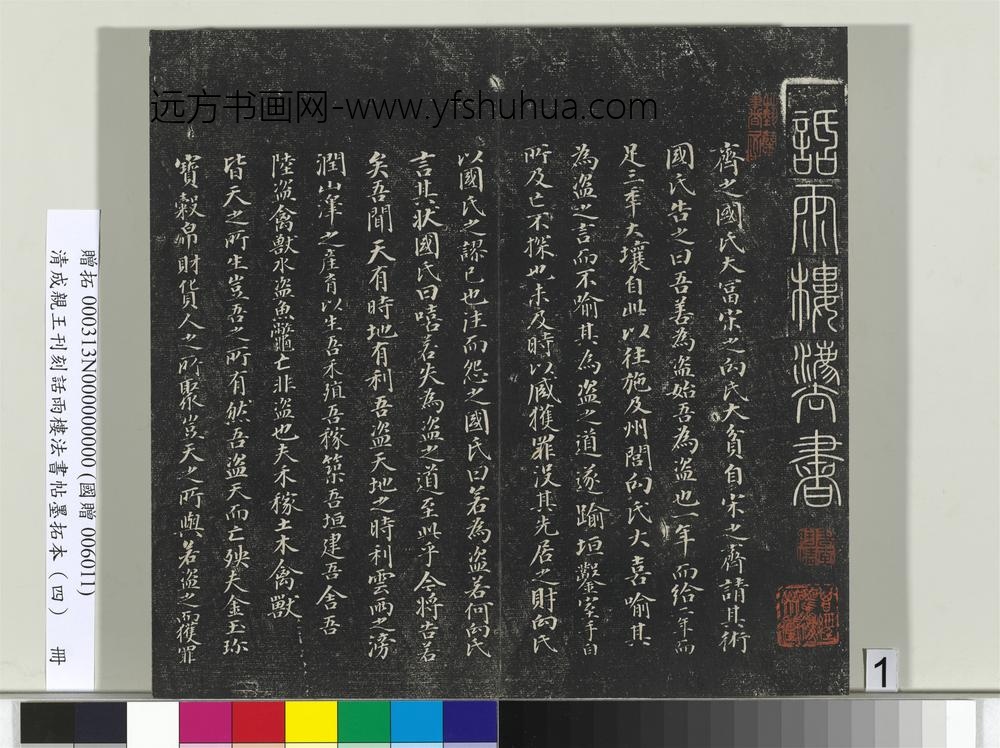 远方书画网-www.yfshuhua.com
話雨樓灋書
齊之國氏大富宋之向氏大貧自宋之齊請其術
國氏告之曰吾善為盜始吾為盜也一年而給二年而
足三年大壤自此以往施及州閭向氏大喜喻其
為盜之言而不喻其為盜之道遂踰垣鑿室手目
所及亡不探也未及時以臧獲罪没其先居之財向氏
以國氏之謬已也往而怨之國氏曰若為盜若何向氏
言其狀國氏曰嘻若失為盜之道至此乎今將告若
矣吾聞天有時地有利吾盜天地之時利雲雨之滂
潤山澤之產育以生吾禾殖吾稼築吾垣建吾舍吾
陸盜禽獸水盜魚鼈亡非盜也夫禾稼土木禽獸
皆天之所生豈吾之所有然吾盜天而亡殃夫金玉珍
寶穀帛財貨人之所聚豈天之所與若盜之而獲罪
贈拓 000313N000000000 (國贈 006011)
清成親王刊刻話雨樓法書帖墨拓本（四） 冊
1